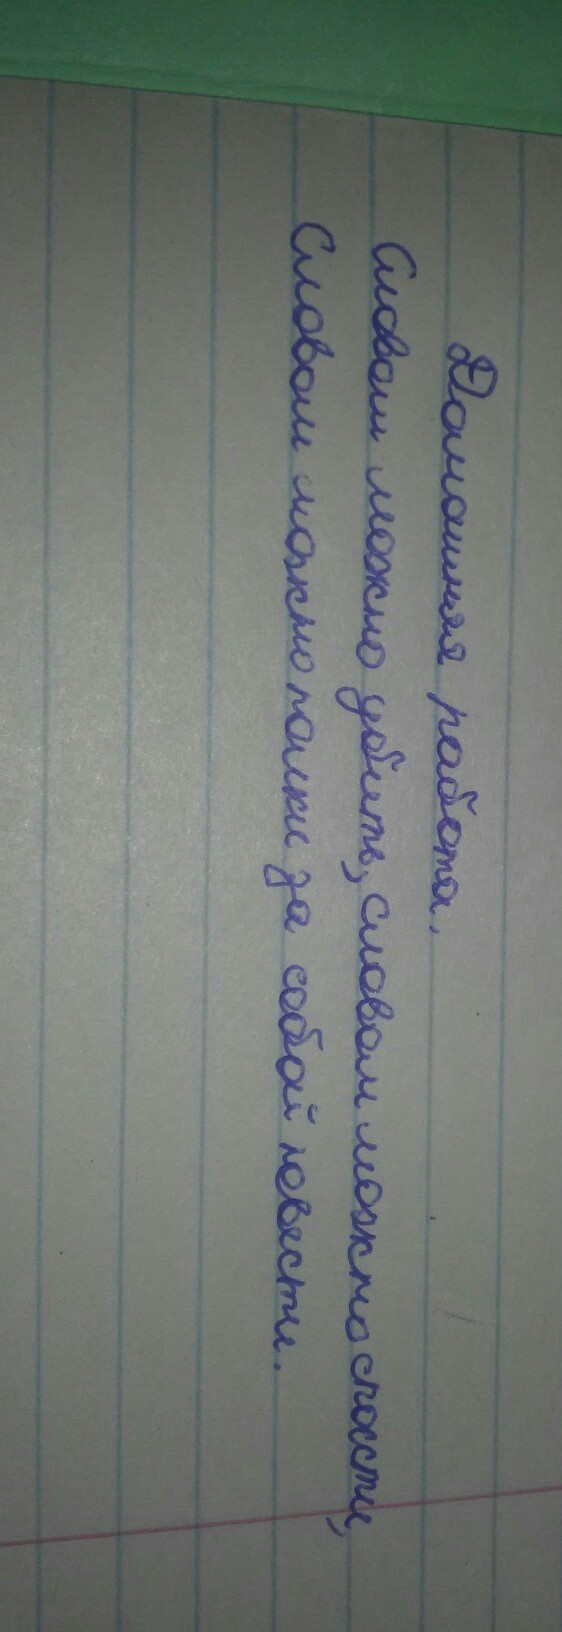 Домашняя работа.
Словом можно убить, словом можно спасти,
Словом можно полки за собой повести.